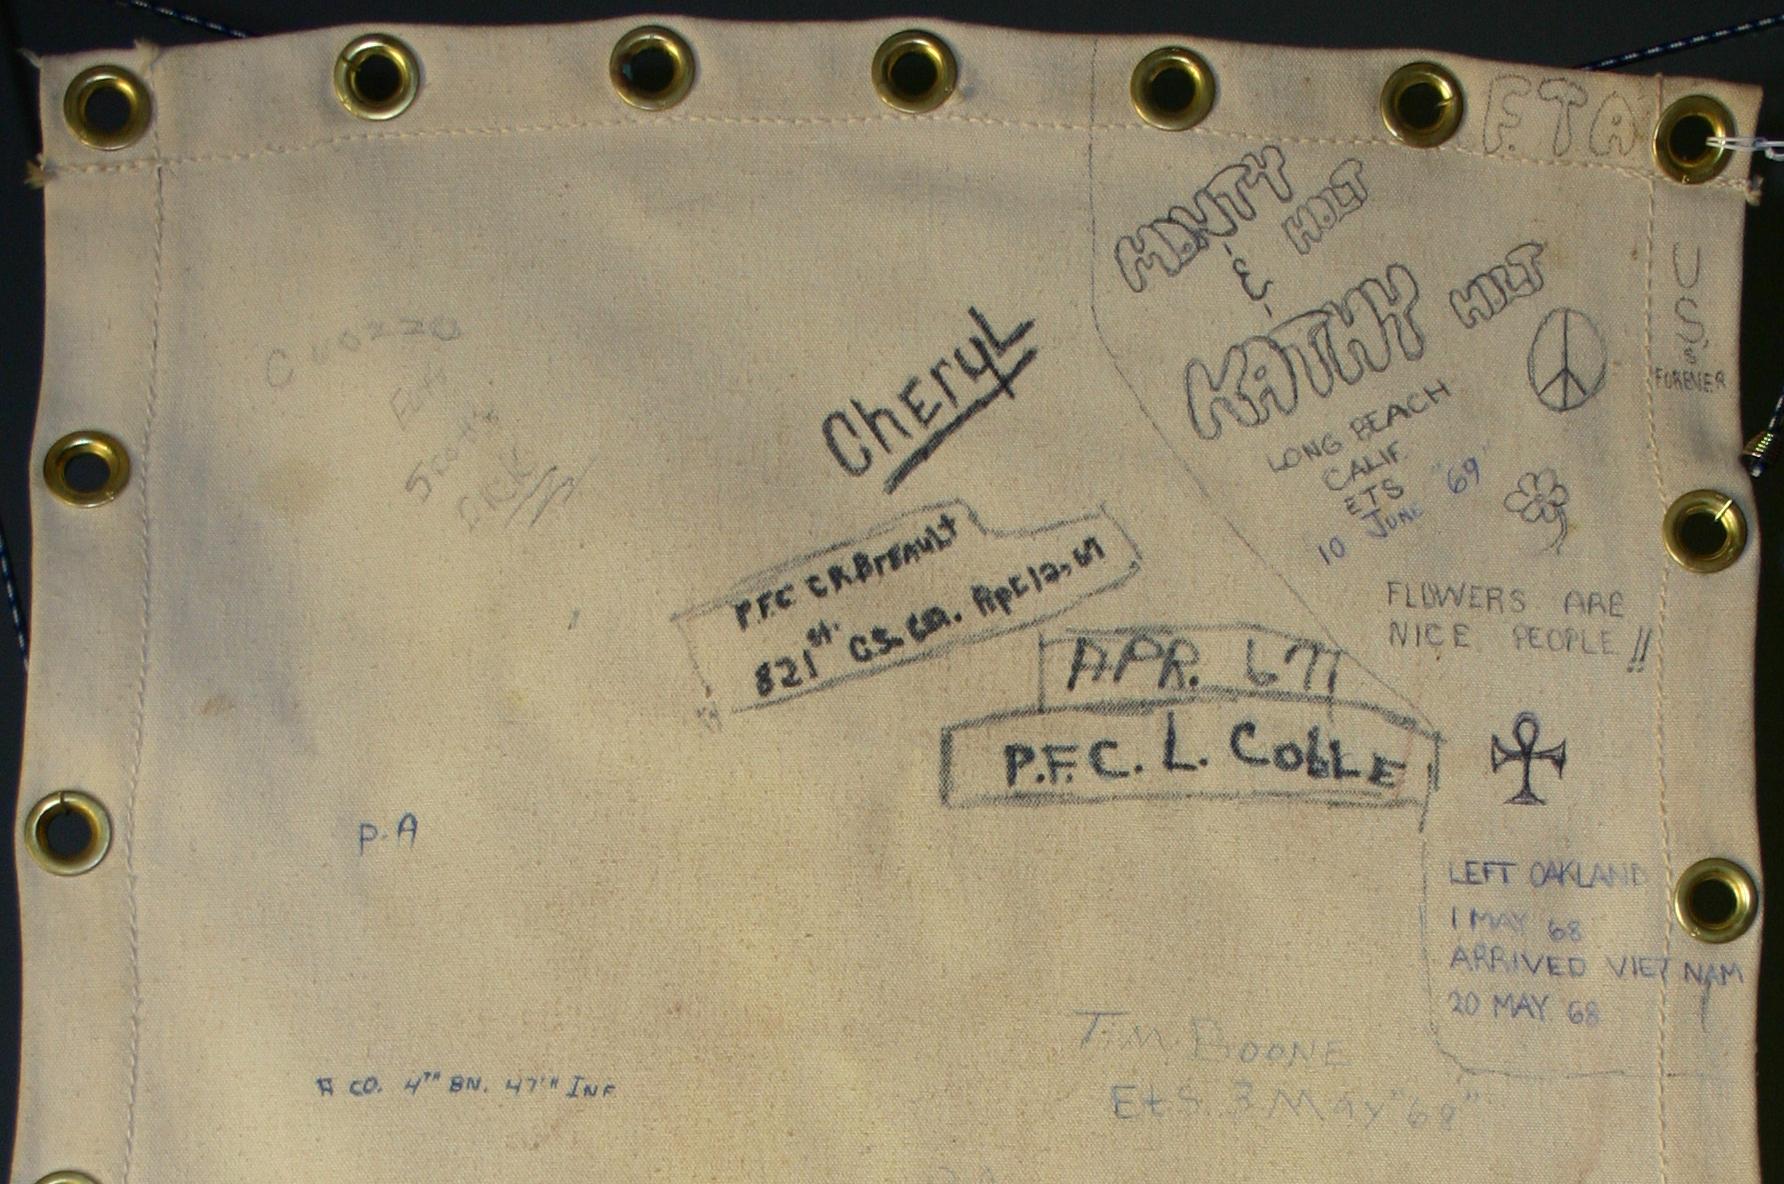 F.T.A
MONTY HOLT
&
KATHY HOLT
LONG BEACH
CALIF.
ETS
10 JUNE "69"
U
S
&
FOREVER
FLOWERS ARE
NICE PEOPLE!!
CheryL
P.F.C C R.BreauLt
821st. G.S. CO. Apr 12, 67
APR. 67
P.F.C. L. CobLE
P.A
LEFT OAKLAND
1 MAY 68
ARRIVED VIET NAM
20 MAY 68
Tim BOONE
EtS. 3 MAy "68"
A CO. 4TH BN. 47TH INF